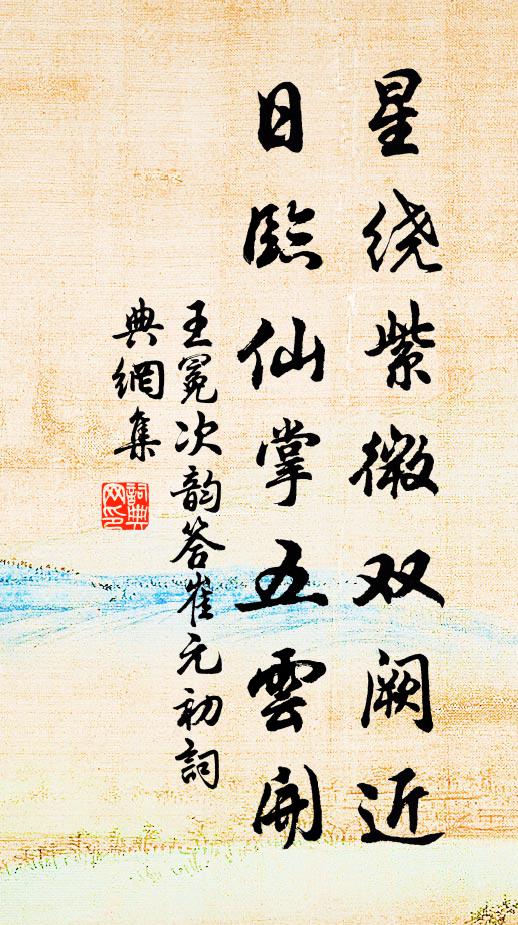 星绕紫微双阙近
日臨仙掌五雲開
王冕次韵答崔元初詞
典網集
詞典
网印